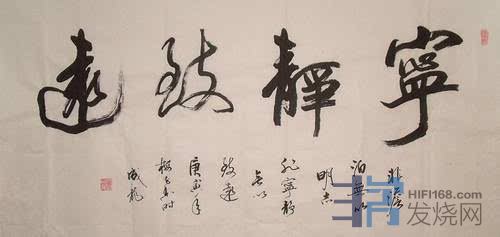 寧靜致遠
非澹
泊無以
明志
非寧靜
无以
致遠
庚寅年
HIFI168.COM
发烧网